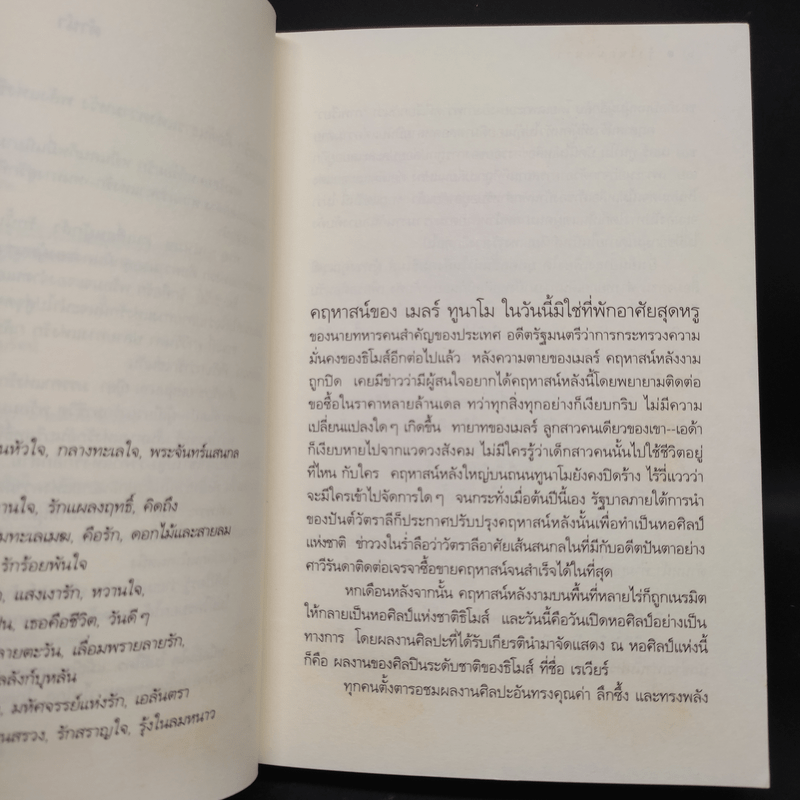 นหัวใจ, กลางทะเลใจ, พระจันทร์แสนกล
านใจ, รักแผลงฤทธิ์, คิดถึง
มทะเลเมฆ, คือรัก, ดอกไม้และสายลม
รักร้อยพันใจ
, แสงเงารัก, หวานใจ,
, เธอคือชีวิต, วันดีๆ
ลายตะวัน, เลื่อมพรายลายรัก,
ลลังก์บุหลัน
, มหัศจรรย์แห่งรัก, เอลันตรา
นสรวง, รักสราญใจ, รุ้งในลมหนาว
คฤหาสน์ของ เมลร์ ทูนาโม ในวันนี้มิใช่ที่พักอาศัยสุดหรู
ของนายทหารคนสำคัญของประเทศ อดีตรัฐมนตรีว่าการกระทรวงความ
มั่นคงของธิโมส์อีกต่อไปแล้ว หลังความตายของเมลร์ คฤหาสน์หลังงาม
ถูกปิด เคยมีข่าวว่ามีผู้สนใจอยากได้คฤหาสน์หลังนี้โดยพยายามติดต่อ
ขอซื้อในราคาหลายล้านเดล ทว่าทุกสิ่งทุกอย่างก็เงียบกริบ ไม่มีความ
เปลี่ยนแปลงใดๆ เกิดขึ้น ทายาทของเมลร์ ลูกสาวคนเดียวของเขา--เอด้า
ก็เงียบหายไปจากแวดวงสังคม ไม่มีใครรู้ว่าเด็กสาวคนนั้นไปใช้ชีวิตอยู่
ที่ไหน กับใคร คฤหาสน์หลังใหญ่บนถนนทูนาโมยังคงปิดร้าง ไร้วี่แววว่า
จะมีใครเข้าไปจัดการใดๆ จนกระทั่งเมื่อต้นปีนี้เอง รัฐบาลภายใต้การนำ
ของปันต์วัตราลีก็ประกาศปรับปรุงคฤหาสน์หลังนั้นเพื่อทำเป็นหอศิลป์
แห่งชาติ ข่าววงในร่ำลือว่าวัตราลีอาศัยเส้นสนกลในที่มีกับอดีตปันตาอย่าง
ศาวีรันดาติดต่อเจรจาซื้อขายคฤหาสน์จนสำเร็จได้ในที่สุด
หกเดือนหลังจากนั้น คฤหาสน์หลังงามบนพื้นที่หลายไร่ก็ถูกเนรมิต
ให้กลายเป็นหอศิลป์แห่งชาติธิโมส์ และวันนี้คือวันเปิดหอศิลป์อย่างเป็น
ทางการ โดยผลงานศิลปะที่ได้รับเกียรตินำมาจัดแสดง ณ หอศิลป์แห่งนี้
ก็คือ ผลงานของศิลปินระดับชาติของธิโมส์ ที่ชื่อ เรเวียร์
ทุกคนตั้งตารอชมผลงานศิลปะอันทรงคุณค่า ลึกซึ้ง และทรงพลัง